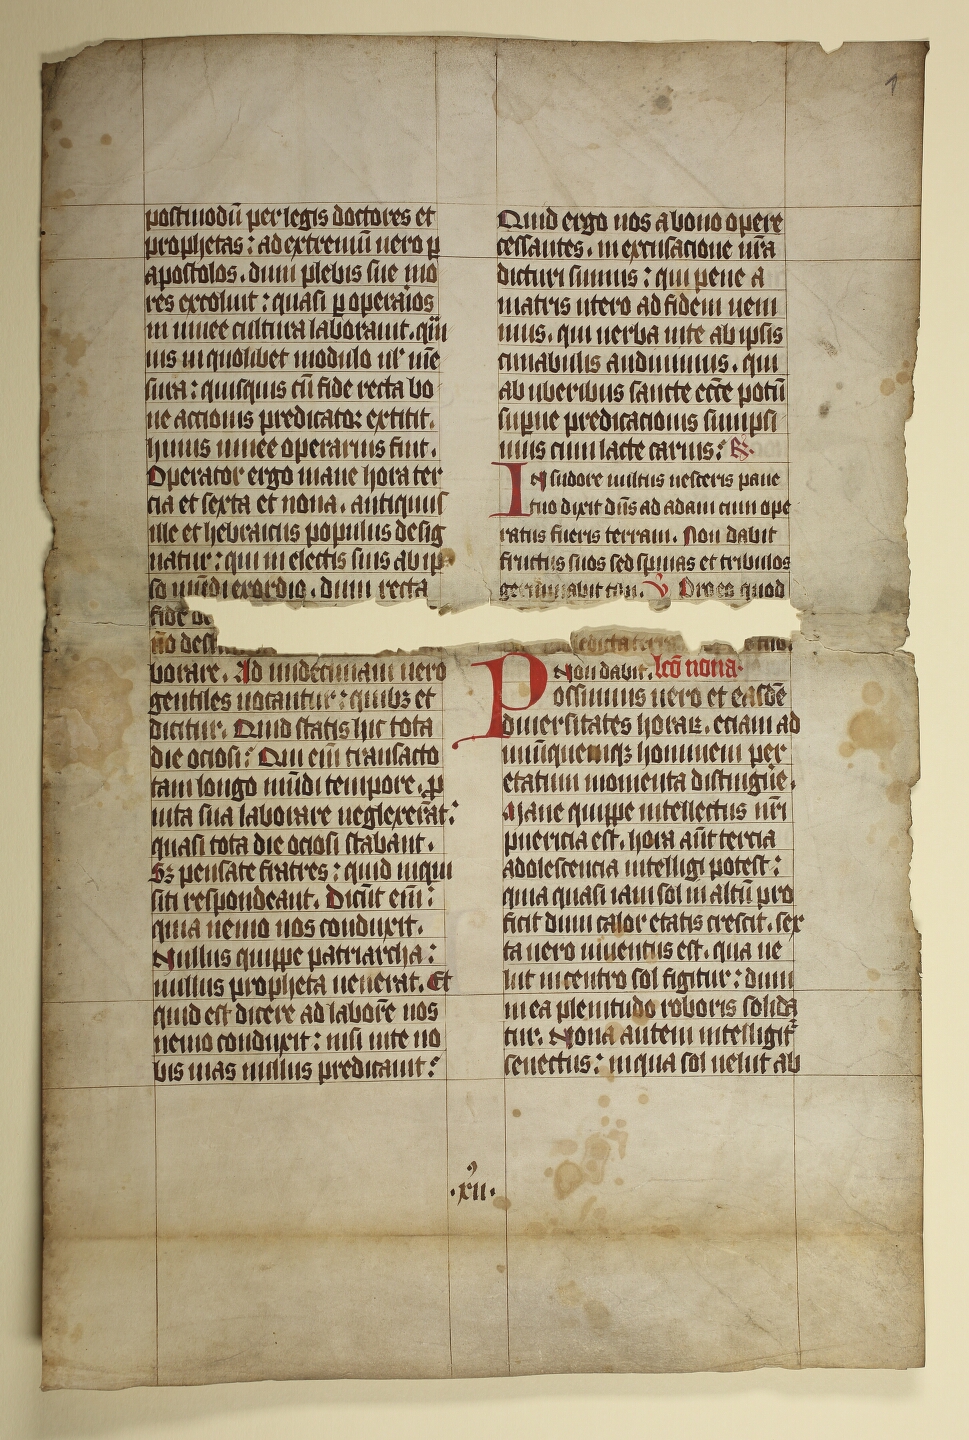 1
postmodū per legis doctores et
prophetas : ad extremū uero p
apostolos . dum plebis sue mo
res excoluit : quasi p operaios
in uinee cultura laborauit . qūi
uis in quolibet modulo ul' mē
sura : quisquis cū fide recta bo
ne accionis predicator extitit .
huius uinee operarius fuit .
Operator ergo mane hora ter
cia et sexta et nona . antiquus
ille et hebraicus populus desig
natur : qui in electis suis ab ip
so mūdi exordio . dum recta
fide
nō
borare . Ad undecimam uero
gentiles uocantur : quibꝫ et
dicitur . Quid statis hic tota
die ociosi : Qui eīm transacto
tam longo mūdi tempore . p
uita sua laborare neglexerāt :
quasi tota die ociosi stabant .
Sꝫ pensate fratres : quid inqui
siti respondeant . Dicūt eīm :
quia nemo nos conduxit .
Nullus quippe patriarcha :
nullus propheta uenerat . Et
quid est dicere ad laborē nos
nemo conduxit : nisi uite no
bis uias nullus predicauit :
Quid ergo nos a bono opere
cessantes . in excusacione nrā
dicturi sumus : qui pene a
matris utero ad fidem ueni
mus . qui uerba uite ab ipsis
cunabulis audiuimus . qui
ab uberibus sancte ecce potū
supne predicacionis sumpsi
mus cum lacte carnis : R
In sudore uultus uesceris pane
tuo dixit dn̄s ad adam cum ope
ratus fueris terram . Non dabit
fructus suos sed spinas et tribulos
germinabit tibi . V Pro es quod
Non dabit . Lcō nona .
Possumus uero et easdē
diuersitates horaꝝ . eciam ad
unūquemqꝫ hominem per
etatum momenta distinguē .
Mane quippe intellectus nr̄i
puericia est . hora aūt tercia
adolescencia intelligi potest :
quia quasi iam sol in altū pro
ficit dum calor etatis crescit . sex
ta uero iuuentus est . qua ue
lut in centro sol figitur : dum
in ea plenitudo roboris solida
tur . Nona autem intelligit
senectus : in qua sol uelut ab
. xii .